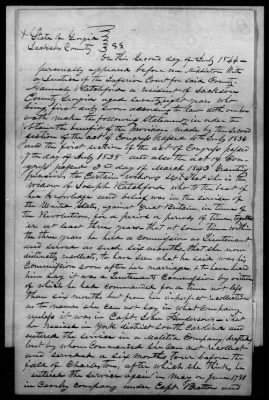 State of Georgia
Jackson County } SS.
On this Second day of July 1844
personally appeared before me Middleton Witt
a Justice of the Inferior Court for said County
Hannah Ratchford a resident of Jackson
County Georgia aged seventy eight years who
being first duly sworn according to law doth on her
oath make the following Statement in order to
obtain the benefit of the provision made by the
section of the act of Congress passed 4th July 1836
and the first section of the act of Congress passed
7th day of July 1838, and also the act of Con
gress passed 3rd day of March 1843 Granting
pensions to Certain widows &c. That she is the
widow of Joseph Ratchford who to the best of
her knowledge and belief was in the service of
the United States against Great Britain in time of
the Revolution, for a period or periods of time, together
or at least three years, that at some time within
the three years he held a Commission as Lieutenant
and served as such six months, that she now
distinctly recollects, to have seen what he said was his
Commission soon after her marriage, & to have heard
him say it was a Lieutenants Commission by virtue
of which he had commanded for a time not less
than six months but from an imperfect recollection
as to names she can not say in what Company
unless it was in Capt. John Henderson's that
he resided in York district South Carolina and
entered the service in a Militia Company
but by whom Commanded she can not recollect
and served a six months tour before the
fall of Charleston, after which she thinks he
entered the service again in May or June 1780
in Cavalry Company under Capt.